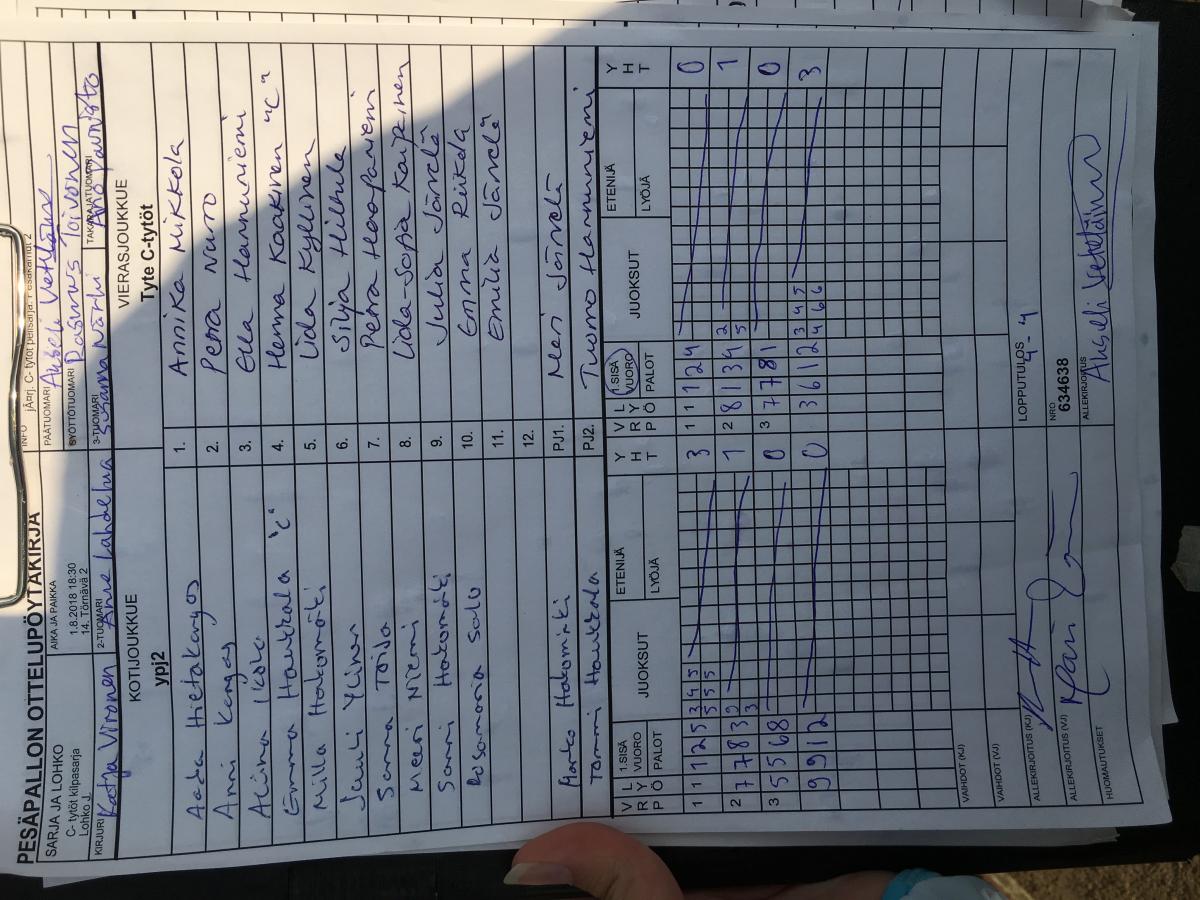 PESÄPALLON OTTELUPÖYTÄKIRJA
SARJA JA LOHKO
C- tytöt kilpasarja
Lohko J.
AIKA JA PAIKKA
1.8.2018 18:30
14. Törnävä 2
INFO
PÄÄTUOMARI
SYÖTTÖTUOMARI Rasmus Toivonen
KIRJURI Katja Vironen
2-TUOMARI Anne
3-TUOMARI
TAKARAJATUOMARI
KOTIJOUKKUE
ypj2
VIERASJOUKKUE
Tyte C-tytöt
Aada Hietakangas 1. Annika Mikkola
Anni Kangas 2. Petra Nuro
Aliina Ikola 3. Ella Hannuniemi
Emma Haukkala "c" 4. Henna Kaakinen "C"
Milla Hakomäki 5. Iida Kyllinen
Juuli Ylinen 6. Silja Huhtala
Sanna Toida 7. Petra Haapaniemi
Meeri Niemi 8. Iida-Sofia Karjkinen
Sanni Hakomäki 9. Julia Järvelä
Rosamaria Salo 10. Emma Reikola
11. Emilia Järvelä
12.
Marko Hakomäki PJ1. Meri Järvelä
Tommi Haukkala PJ2. Tuomo Hannuniemi
V P L Y R Ö 1.SISÄ VUORO PALOT JUOKSUT ETENIJÄ LYÖJÄ Y H T
V P L Y R Ö 1.SISÄ VUORO PALOT JUOKSUT ETENIJÄ LYÖJÄ Y H T
1 1 1 2 5 3 4 5 3
5 5 5
1 1 1 2 4 0
2 7 7 8 3 9 1
3
2 8 1 3 4 2 1
5
3 5 5 6 8 0
3 7 7 8 1 0
9 9 1 2 0
3 6 1 2 3 4 5 3
4 6 6
VAIHDOT (KJ)
VAIHDOT (VJ)
LOPPUTULOS
4 - 4
ALLEKIRJOITUS (KJ)
ALLEKIRJOITUS (VJ)
NRO
634638
ALLEKIRJOITUS
HUOMAUTUKSET